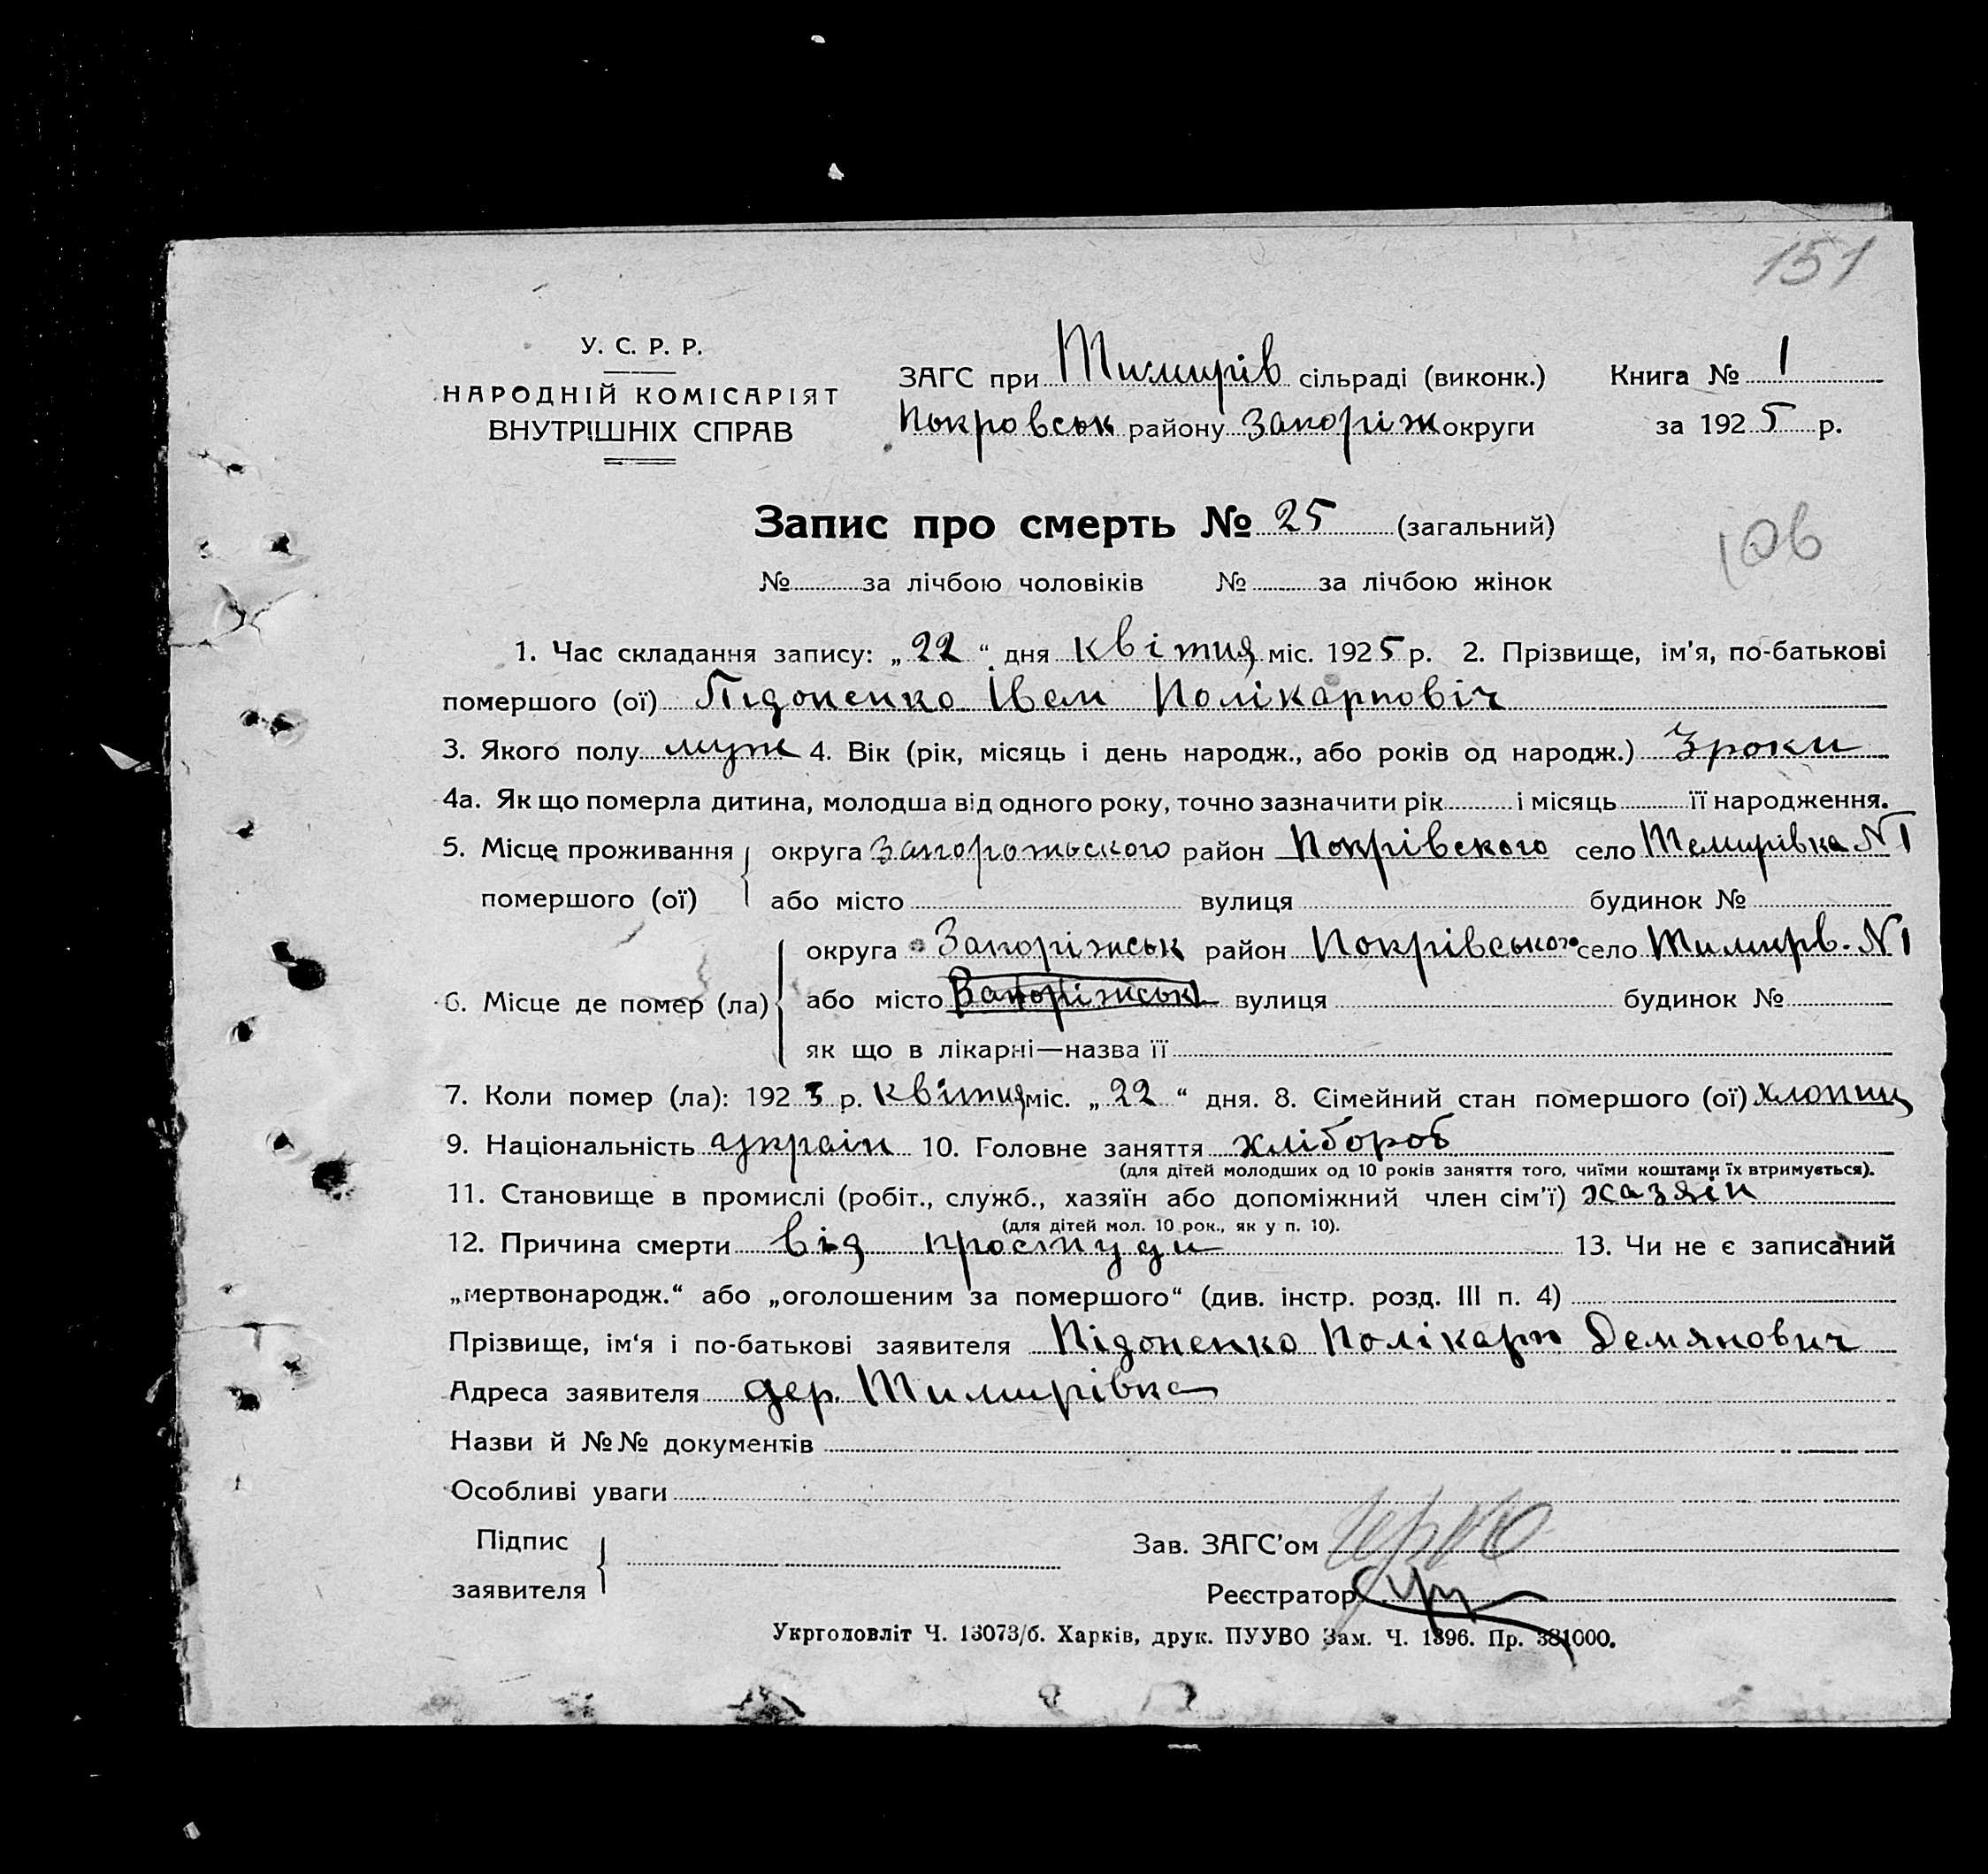 151
У. С. Р. Р.
НАРОДНІЙ КОМІСАРІЯТ
ВНУТРІШНІХ СПРАВ
ЗАГС при Тимирів сільраді (виконк.) Книга № 1
Покровськ району Запоріж округи за 1925 р.
Запис про смерть № 25 (загальний)
106
№ за лічбою чоловіків № за лічбою жінок
1. Час складання запису: „22“ дня квітня міс. 1925 р. 2. Прізвище, ім'я, по-батькові
помершого (ої) Підоненко Іван Полікарповіч
3. Якого полу муж 4. Вік (рік, місяць і день народж., або років од народж.) 3 роки
4а. Як що померла дитина, молодша від одного року, точно зазначити рік і місяць її народження.
5. Місце проживання помершого (ої) округа Запорожського район Покрівского село Темирівка N1
або місто вулиця будинок №
6. Місце де помер (ла) округа Запоріжськ район Покрівського село Тимирв. N1
або місто Запоріжськ вулиця будинок №
як що в лікарні—назва її
7. Коли помер (ла): 1925 р. квітня міс. „22“ дня. 8. Сімейний стан помершого (ої) хлопиц
9. Національність україн 10. Головне заняття хлібороб
(для дітей молодших од 10 років заняття того, чиїми коштами їх втримується).
11. Становище в промислі (робіт., служб., хазяїн або допоміжний член сім'ї) хазяін
(для дітей мол. 10 рок., як у п. 10).
12. Причина смерти від простуди 13. Чи не є записаний
„мертвонародж.“ або „оголошеним за помершого“ (див. інстр. розд. III п. 4)
Прізвище, ім'я і по-батькові заявителя Підоненко Полікарп Демянович
Адреса заявителя дер. Тимирівка
Назви й №№ документів
Особливі уваги
Підпис заявителя Зав. ЗАГС'ом
Реєстратор
Укрголовліт Ч. 13073/б. Харків, друк. ПУУВО Зам. Ч. 1896. Пр. 381000.